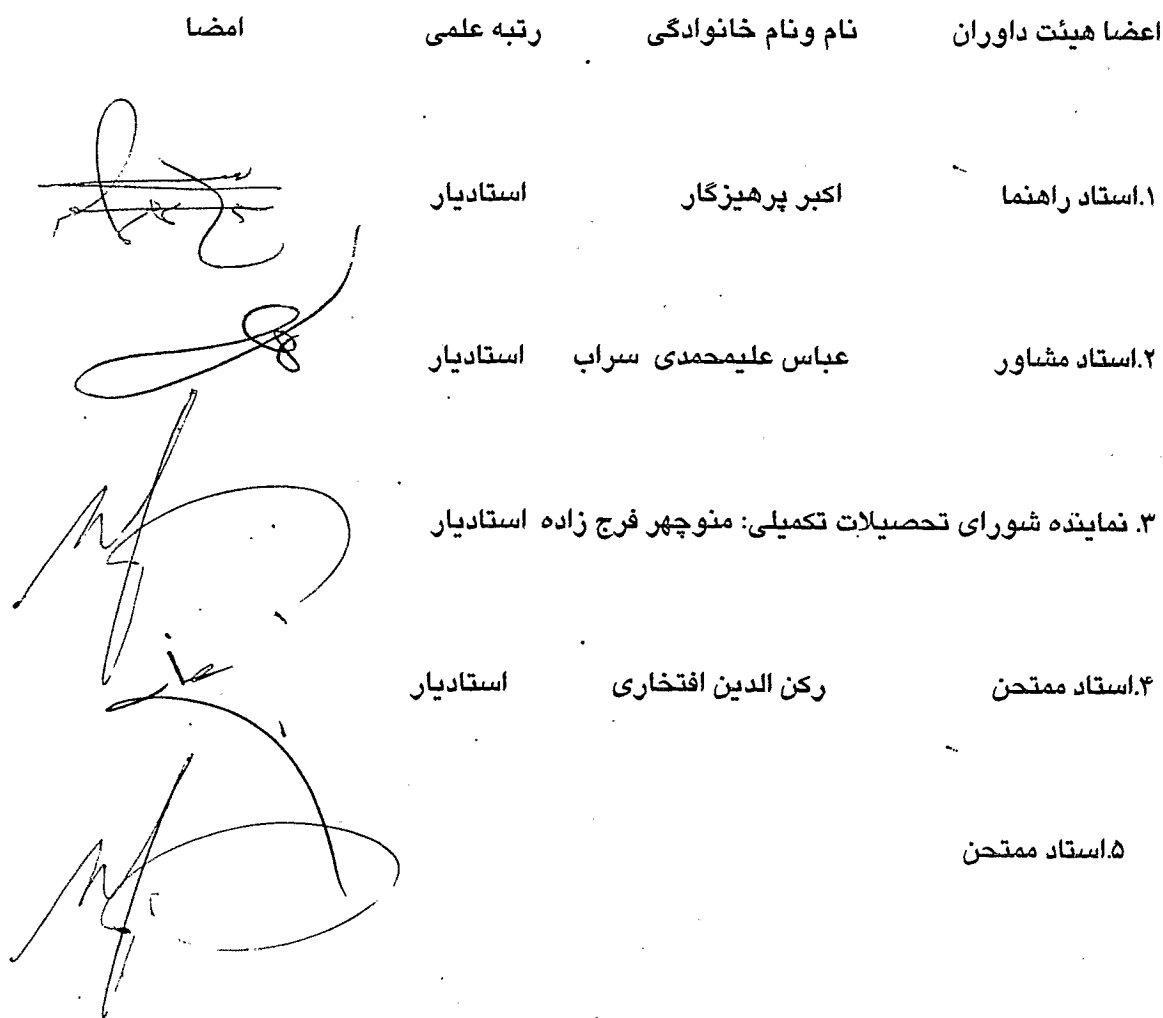 اعضا هیئت داوران نام ونام خانوادگی رتبه علمی امضا
۱.استاد راهنما اکبر پرهیزگار استادیار
۲.استاد مشاور عباس علیمحمدی سراب استادیار
۳. نماینده شورای تحصیلات تکمیلی: منوچهر فرج زاده استادیار
۴.استاد ممتحن رکن الدین افتخاری استادیار
۵.استاد ممتحن